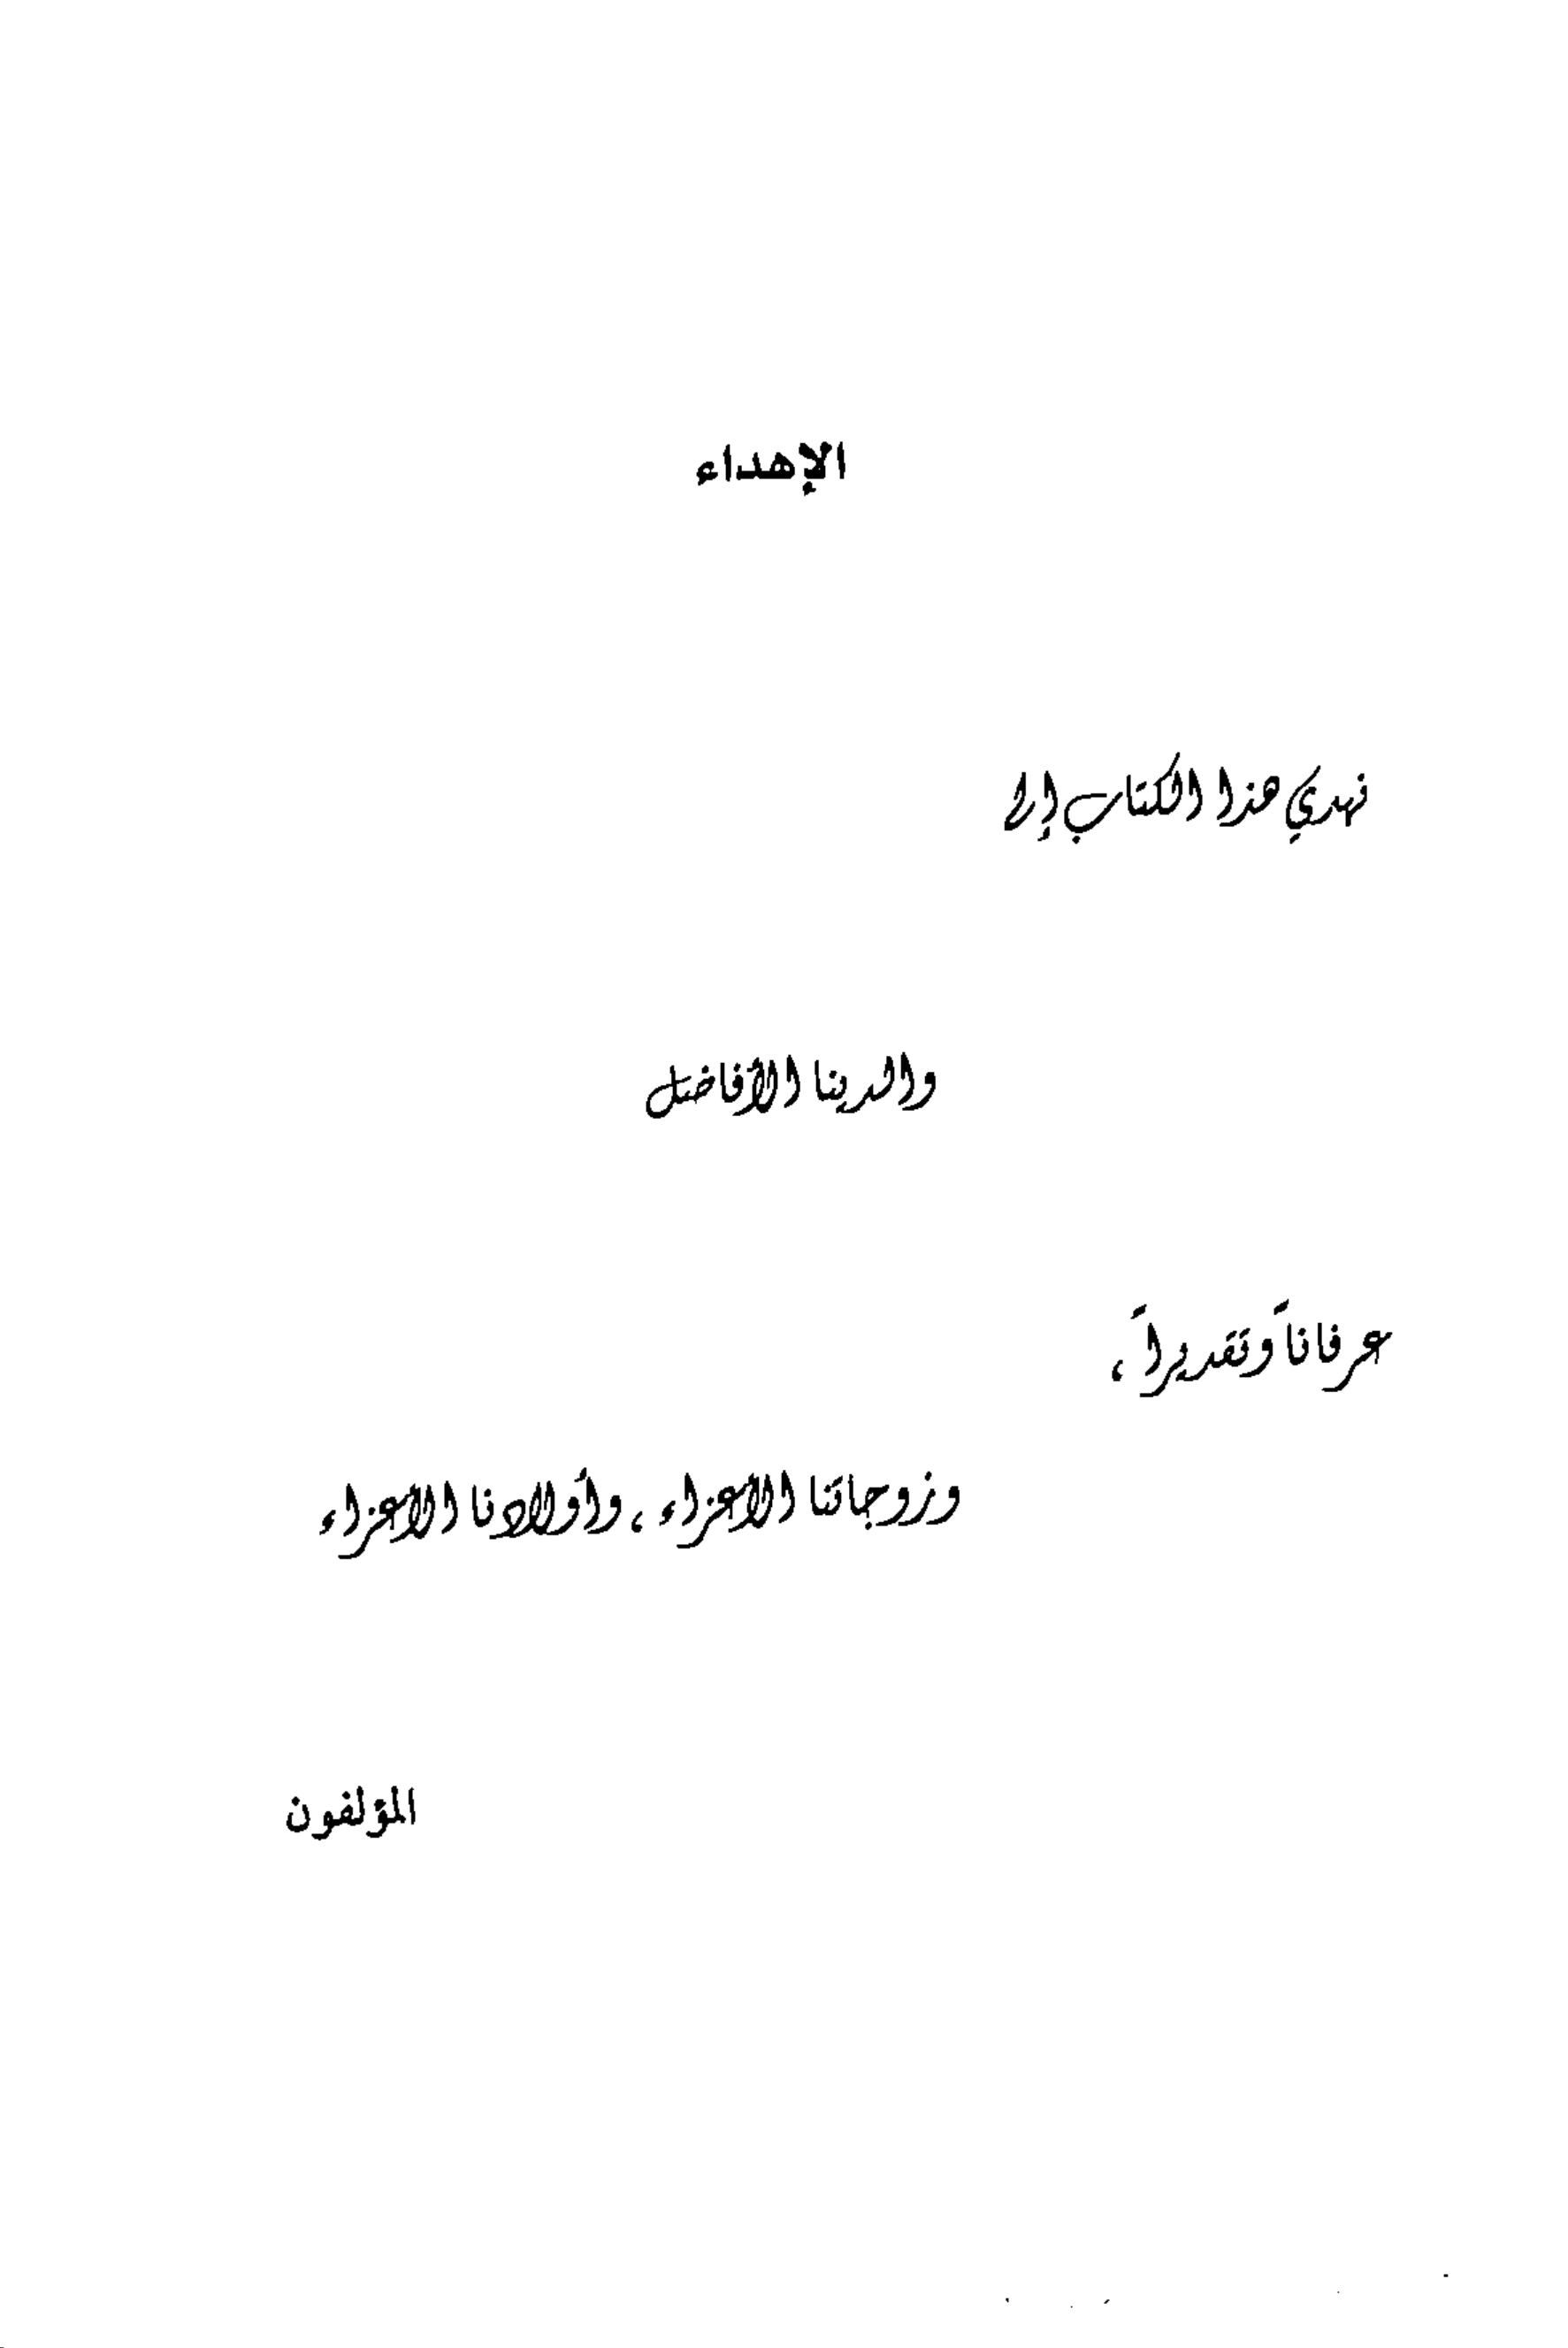 الإهداء
نهدي هذا الكتاب إلى
والدينا الأفاضل
عرفاناً وتقديراً ،
وزوجاتنا الاعزاء ، وأولادنا الاعزاء
المؤلفون